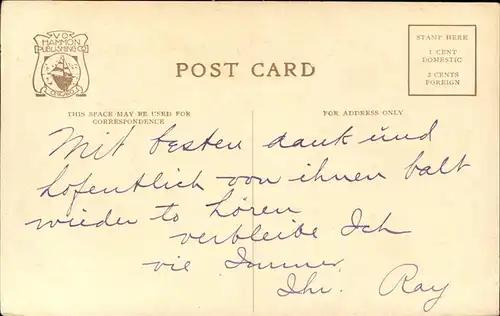 V.O.
HAMMON
PUBLISHING CO.
CHICAGO
POST CARD
STAMP HERE
1 CENT
DOMESTIC
2 CENTS
FOREIGN
THIS SPACE MAY BE USED FOR
CORRESPONDENCE
FOR ADDRESS ONLY
Mit besten dank und
hofentlich von ihnen balt
wieder to hören
verbleibe Ich
vie Immer,
Ihr. Ray